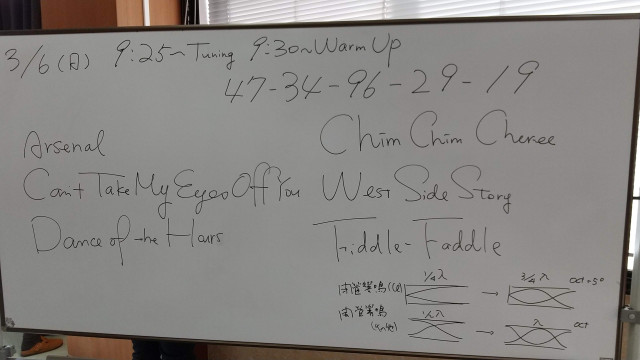 3/6(日) 9:25~Tuning 9:30~Warm Up
47-34-96-29-19
Arsenal
Can't Take My Eyes Off You
Dance of the Hours
Chim Chim Cheree
West Side Story
Fiddle-Faddle
1/4λ → 3/4λ
閉管共鳴
開管共鳴
1/2λ → λ oct